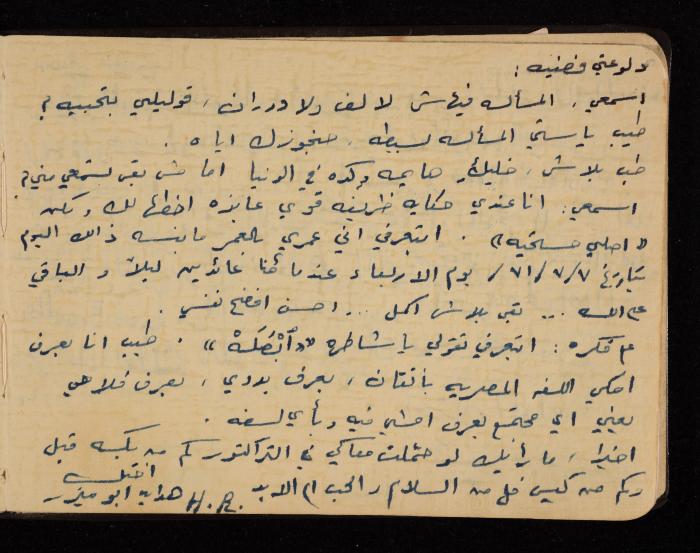 دلوعتي فضيه :
اسمعي ، المسأله فيهاش لا لف ولا دوران ، قوليلي بتحبيه ؟
طيب ياستي المسأله بسيطه ، منجوزك اياه .
طب بلاش ، خليك هايمه وكده في الدنيا اما مش بقى تستمعي مني ؟
اسمعي : انا عندي حكايه ظريفه قوي عايزه احطها لك ولكن
« اصلي مستحيه » . ابتعرفي اني عمري بالعمر ما بنسه ذاك اليوم
بتاريخ ٧/٧/٧١ يوم الاربعاء عندما كنا عائدين ليلاً و الباقي
عالله ... بقى بلاش اكمل ... احسن افضح نفسي .
ع فكره : ابتعرفي تقولي يا شاطره « » . طيب انا بعرف
احكي اللغه المصريه بأتقان ، بعرف بدوي ، بعرف فلاحي
يعني اي مجتمع بعرف امشي فيه وبأي لغه .
اخيرا ، ما رأيك لو حملت معاكي في التراكتور كم من بكسه قبل
وكم من كيس فل من السلام والحب ام الابد
اختك
هدايه ابو ميزر H.R.